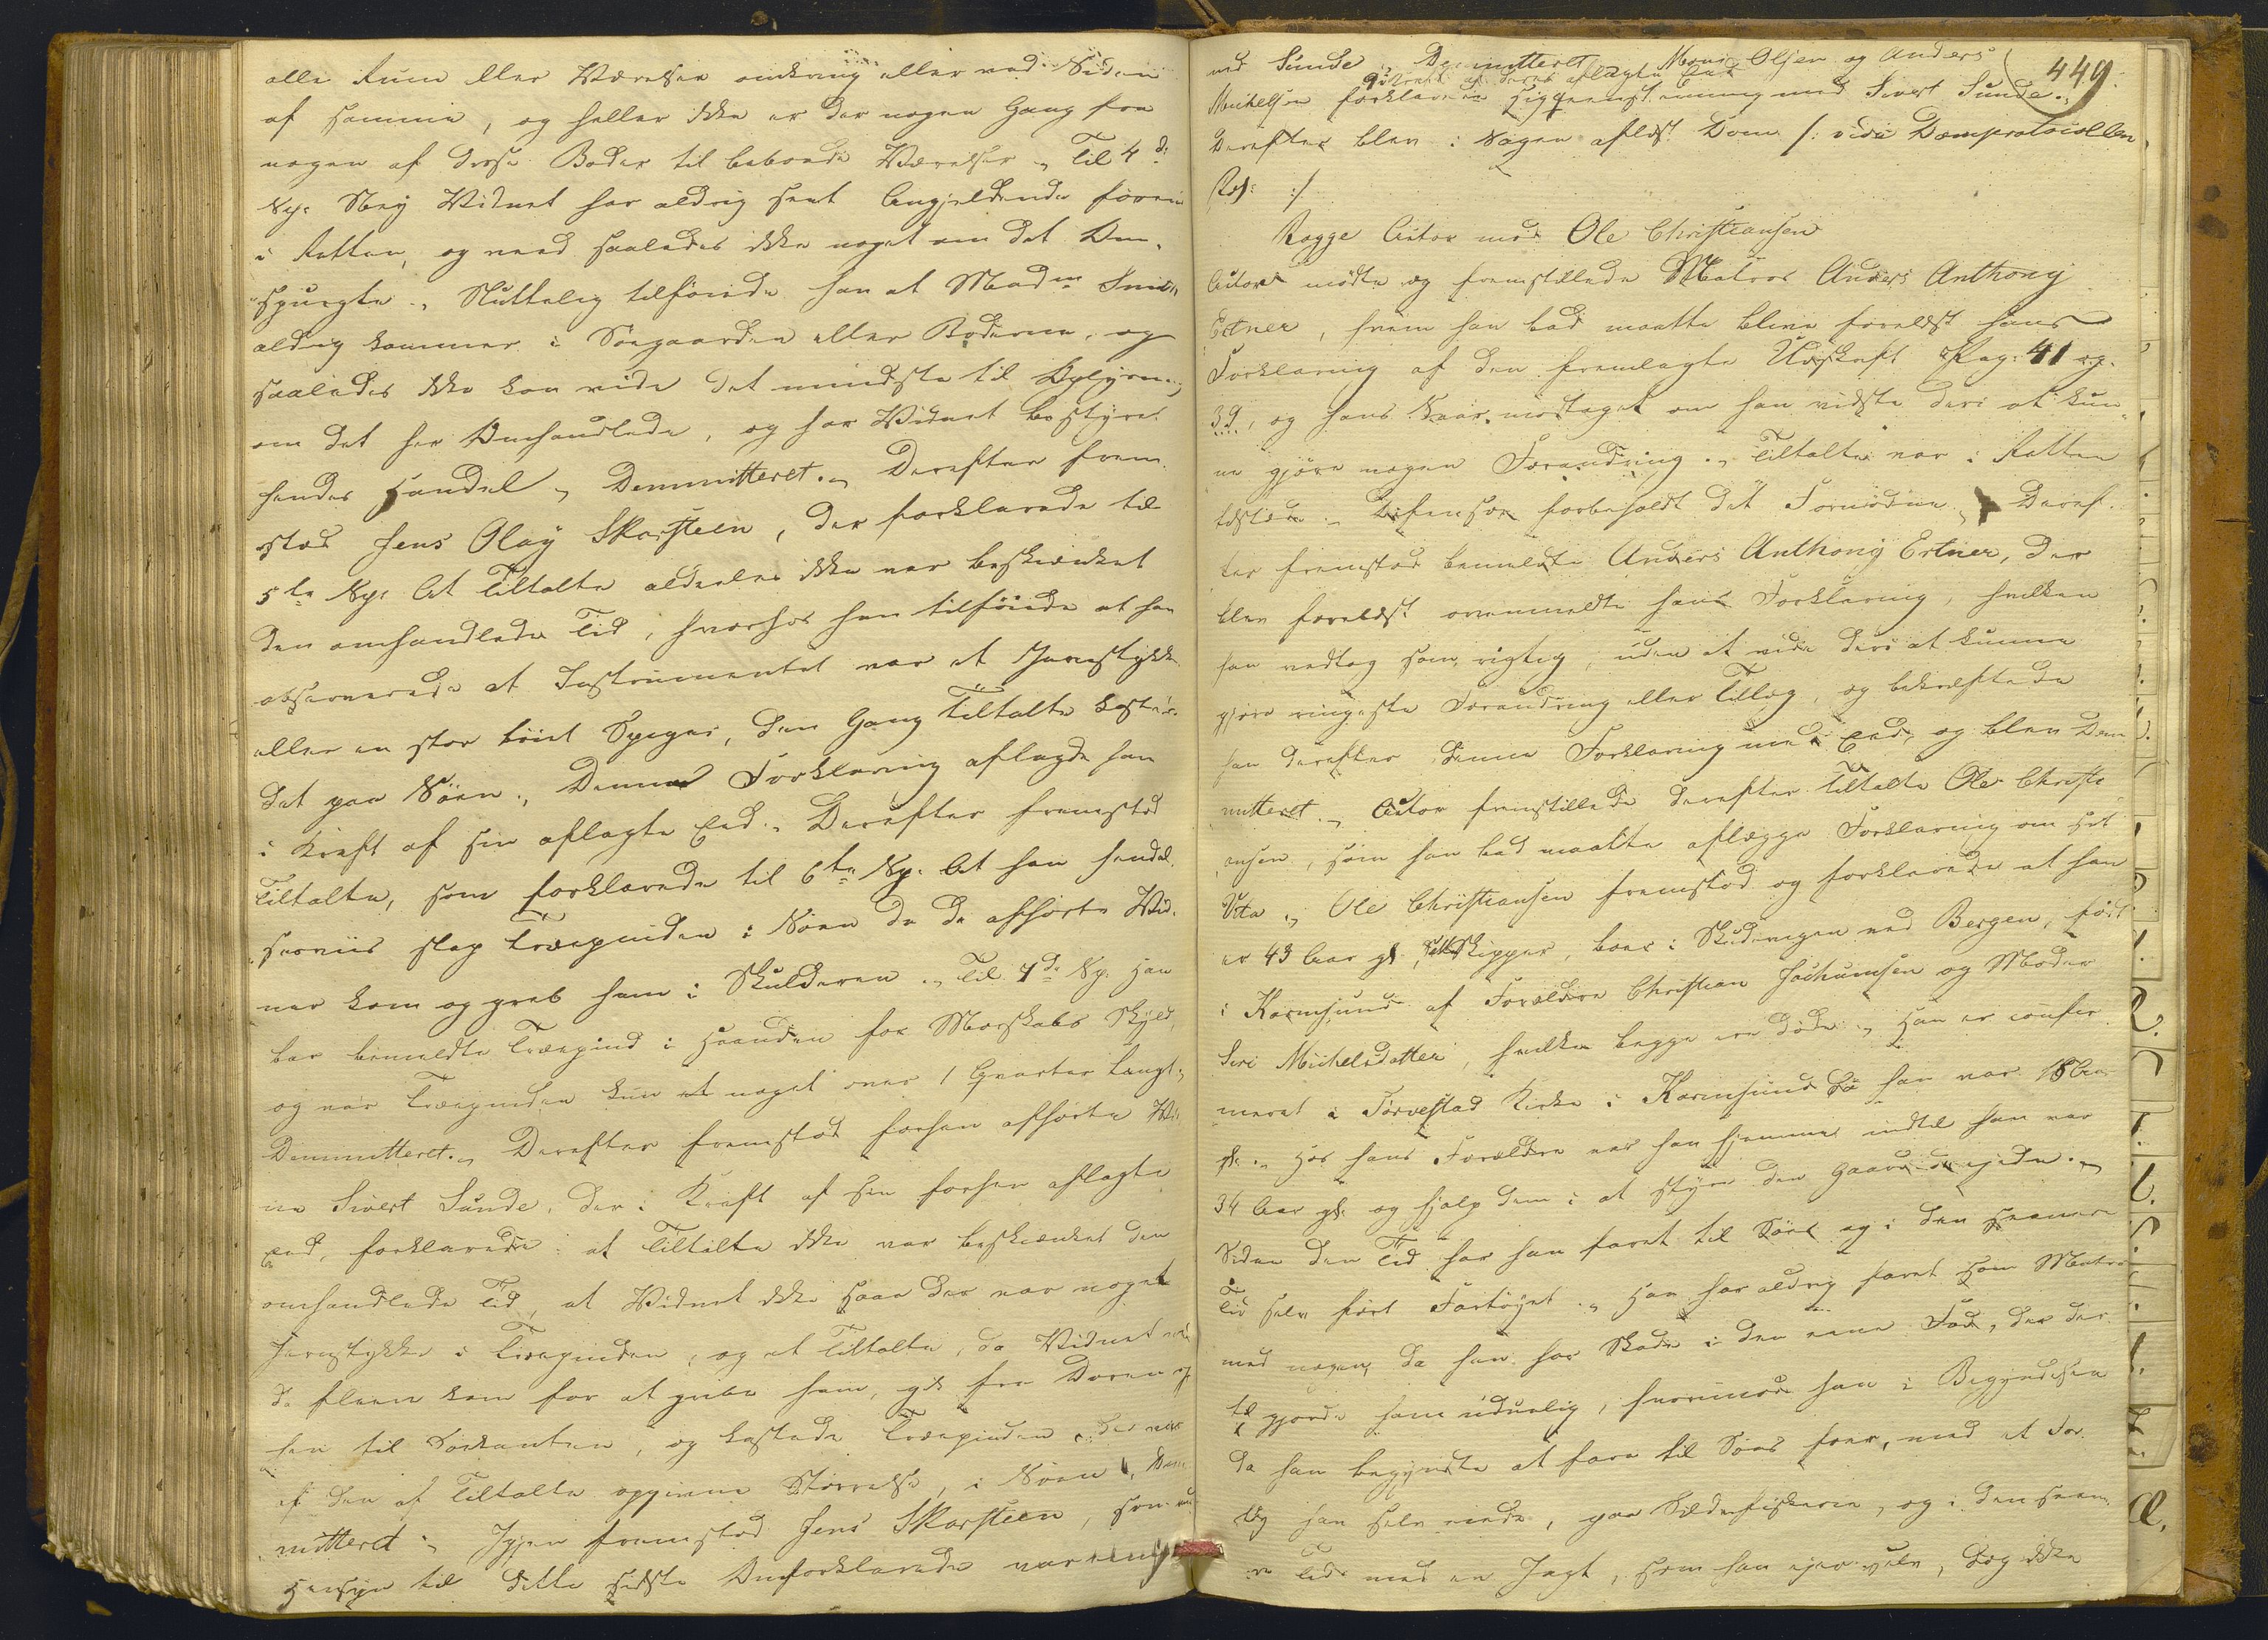 alle Rum eller Værelser omkring eller ved Siden
af samme, og heller ikke er der nogen Gang fra
nogen af disse Boder til beboede Værelser „ Til 4de
Sp: Nej Vidnet har aldrig seet Angjeldende førend
i Retten, og veed saaledes ikke noget om det Om-
spurgte „ Sluttelig tilføiede han at Madm
aldrig kommer i Søegaarden eller Boderne, og
saaledes ikke kan vide det mindste til Oplysning
om det her Omhandlede, og har Vidnet bestyret
hendes Handel „ Demmitteret „ Derefter frem-
stod Jens Olay Skorsteen, der forklarede til
5te Sp: At Tiltalte aldeeles ikke var beskienket
den omhandlede Tid, hvorhos han tilføiede at han
observerede at Instrumentet var et Jernstykke
eller en stor böiet Spiger, den Gang Tiltalte kaste-
det paa Söen „ Denne Forklaring aflagde han
i Kraft af sin aflagte Eed „ Derefter fremstod
Tiltalte, som forklarede til 6te Sp: At han hendel-
seviis slap Træepinden i Söen da de afhørte Vid-
ner kom og greb ham i Skulderen „ Til 7de Sp: Han
bar bemeldte Træepind i Haanden for Morskabs Skyld,
og var Træepinden kun noget over 1 Qvarter langt „
Demmitteret „ Derefter fremstod forhen afhørte Vid-
ne Sivert Sunde, der i Kraft af sin forhen aflagte
Eed, forklarede: at Tiltalte ikke var beskienket den
omhandlede Tid, at Vidnet ikke saae der var noget
Jernstykke i Træepinden, og at Tiltalte, da Vidnet med
de fleere kom for at gribe ham, gik fra Døren og
hen til Søekanten, og kastede Træepinden, der var
af den af Tiltalte opgivne Størrelse, i Söen „ Dem-
mitteret „ Igjen fremstod Jens Skorsteen, som med
Hensyn til dette sidste Omforklarede var enig
449.
med Sunde „ Demmitteret „ Mons Olsen og Anders
i Kraft af deres aflagte Eed
Michelsen forklarede sig med Sivert Sunde „
Derefter blev i Sagen aflæst Dom /: vide Domprotocollen
:/
Rogge Actor mod Ole Christiansen
Actor mødte og fremstillede Matros Anders Anthony
Ertner, hvem han bad maatte blive forelæst hans
Forklaring af den fremlagte Udskrift Pag: 41 og
39, og hans Svar modtaget om han vidste deri at kun-
ne gjøre nogen Forandring „ Tiltalte var i Retten
tilstede „ Defensor forbeholdt det Fornødne „ Deref-
ter fremstod bemeldte Anders Anthony Ertner, der
blev forelæst ovenmeldte hans Forklaring, hvilken
han vedtog som rigtig, uden at vide deri at kunne
gjøre ringeste Forandring eller Tillæg, og bekræftede
han derefter denne Forklaring med Eed, og blev Dem-
mitteret „ Actor fremstillede derefter Tiltalte Ole Christi-
ansen, som han bad maatte aflægge Forklaring om sit
Vita „ Ole Christiansen fremstod og forklarede at han
er 43 Aar gl:, Skipper, boer i Skudevigen ved Bergen, født
i Karmsund af Forældre Christian Jochumsen og Moder
Siri Michelsdatter, hvilke begge ere døde „ Han er confir-
meret i Torvestad Kirke i Karmsund da han var 18 Aar
gl: „ Hos hans Forældre var han hjemme indtil han var
34 Aar gl: og hjalp dem i at styre den Gaard de ejede „
Siden den Tid har han faret til Söes og i den seenere
Tid selv ført Fartøyet „ Han har aldrig faret som Matros
med nogen, da han har Skade i den eene Fod, der der-
til gjorde ham uduelig, hvorimod han i Begyndelsen
da han begyndte at fare til Søes foer, med et Far-
tøy han selv eiede, paa Sildefiskerie, og i den seen-
re Tid med en Jagt, som han ejer selv, dog ikke